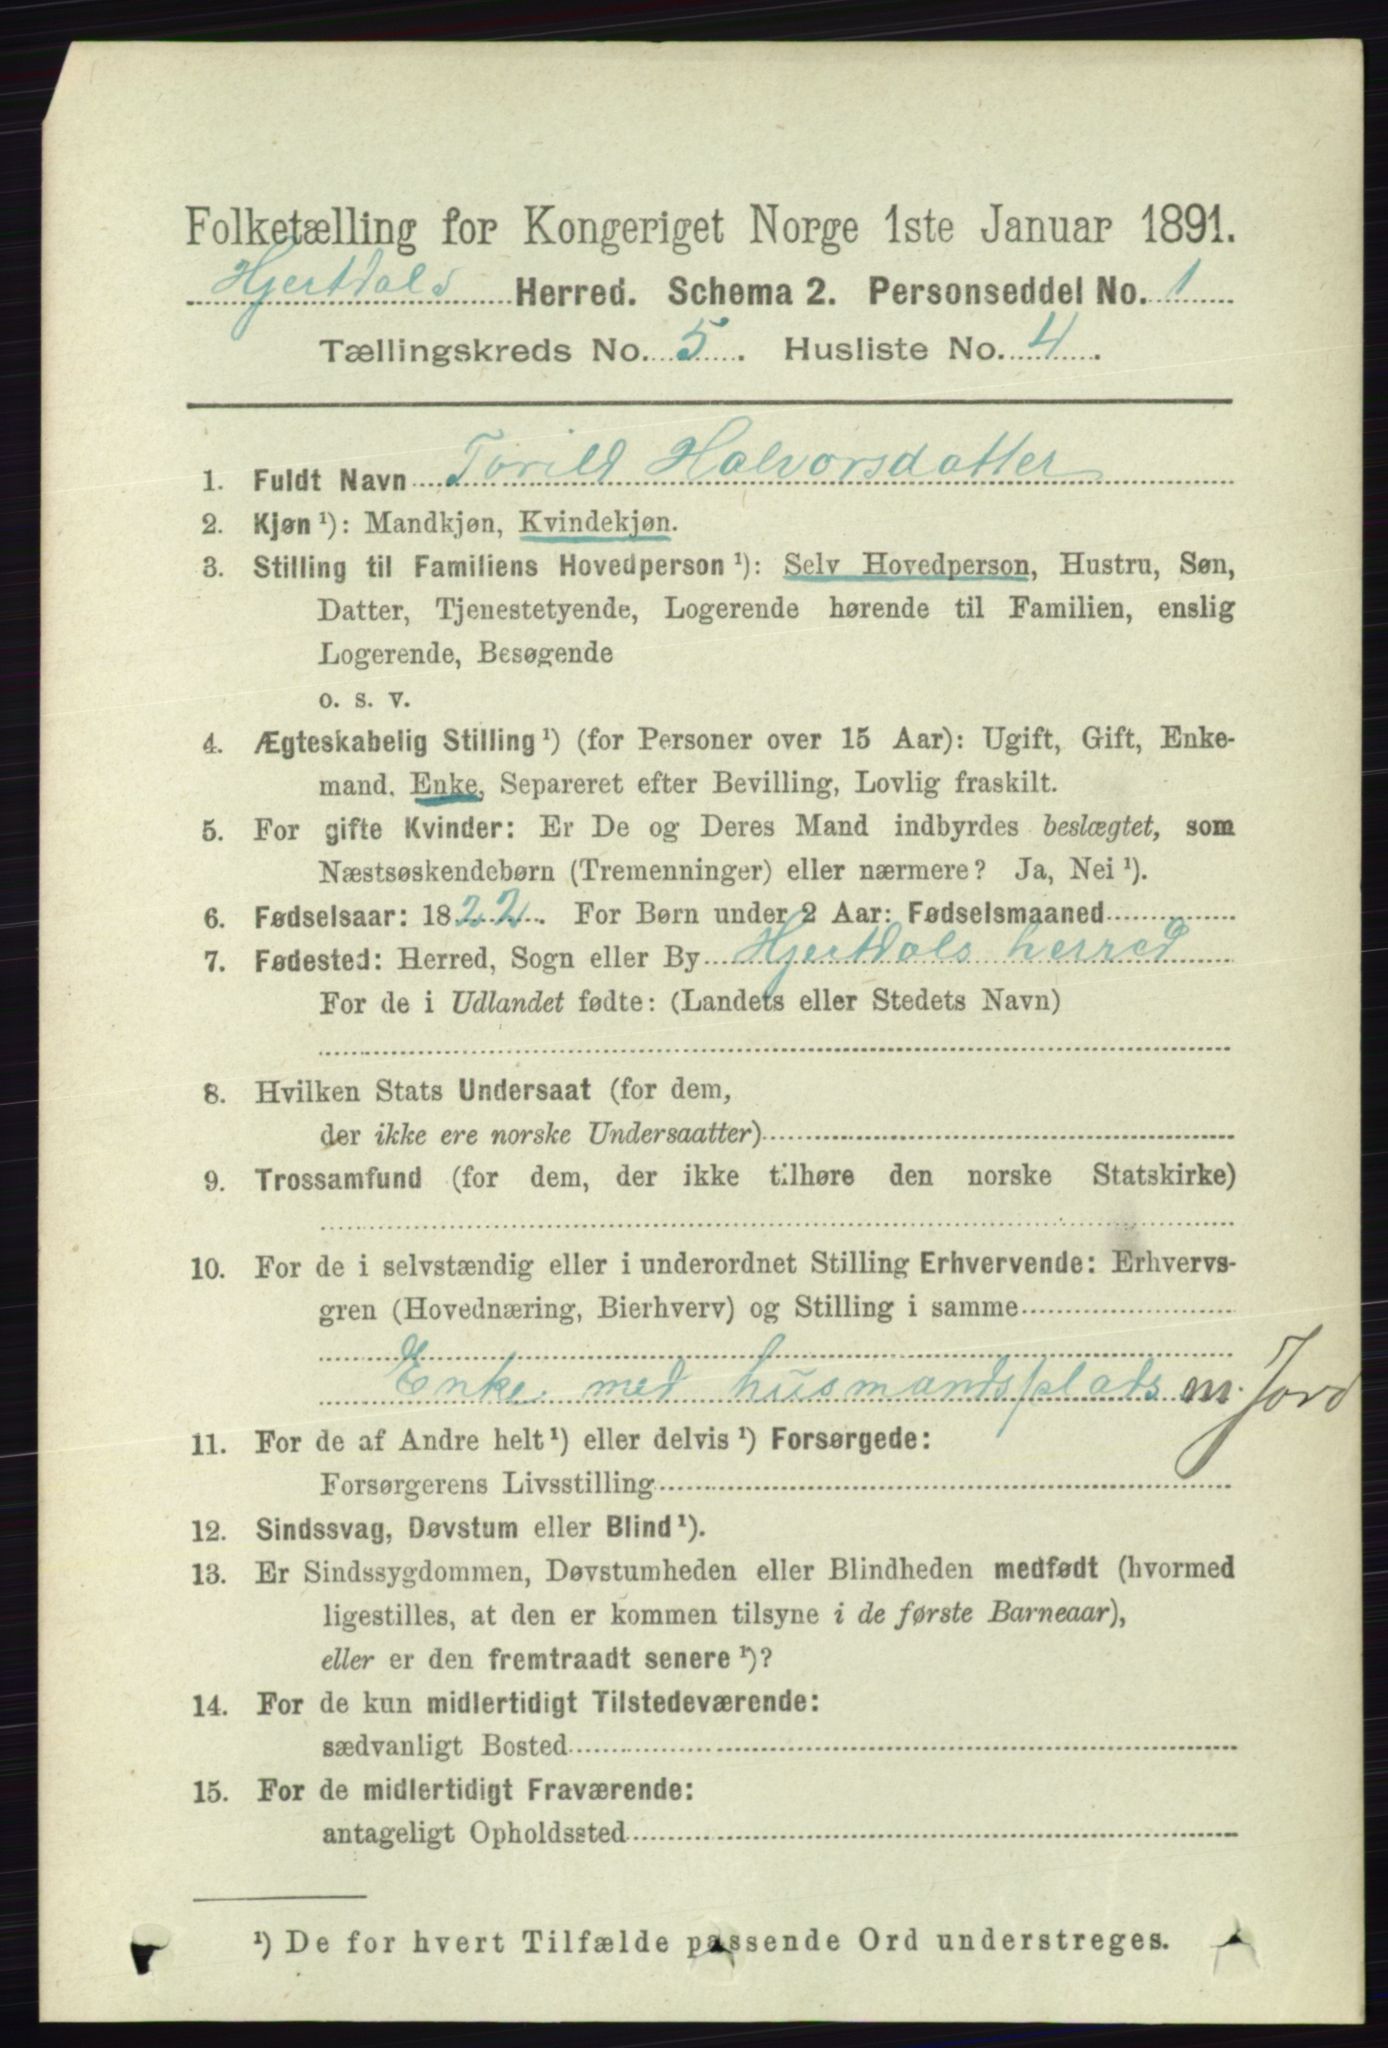 Folketælling for Kongeriget Norge 1ste Januar 1891.
Hjertdals Herred. Schema 2. Personseddel No. 1
Tællingskreds No. 5. Husliste No. 4.
1. Fuldt Navn Torild Halvorsdatter
2. Kjøn ¹): Mandkjøn, Kvindekjøn.
3. Stilling til Familiens Hovedperson ¹): Selv Hovedperson, Hustru, Søn,
Datter, Tjenestetyende, Logerende hørende til Familien, enslig
Logerende, Besøgende
o. s. v.
4. Ægteskabelig Stilling ¹) (for Personer over 15 Aar): Ugift, Gift, Enke-
mand, Enke, Separeret efter Bevilling, Lovlig fraskilt.
5. For gifte Kvinder: Er De og Deres Mand indbyrdes beslægtet, som
Næstsøskendebørn (Tremenninger) eller nærmere? Ja, Nei ¹).
6. Fødselsaar: 1822. For Børn under 2 Aar: Fødselsmaaned
7. Fødested: Herred, Sogn eller By Hjertdals herred
For de i Udlandet fødte: (Landets eller Stedets Navn)
8. Hvilken Stats Undersaat (for dem,
der ikke ere norske Undersaatter)
9. Trossamfund (for dem, der ikke tilhøre den norske Statskirke)
10. For de i selvstændig eller i underordnet Stilling Erhvervende: Erhvervs-
gren (Hovednæring, Bierhverv) og Stilling i samme
Enke med husmandsplads m. Jord
11. For de af Andre helt ¹) eller delvis ¹) Forsørgede:
Forsørgerens Livsstilling
12. Sindssvag, Døvstum eller Blind ¹).
13. Er Sindssygdommen, Døvstumheden eller Blindheden medfødt (hvormed
ligestilles, at den er kommen tilsyne i de første Barneaar),
eller er den fremtraadt senere ¹)?
14. For de kun midlertidigt Tilstedeværende:
sædvanligt Bosted
15. For de midlertidigt Fraværende:
antageligt Opholdssted
¹) De for hvert Tilfælde passende Ord understreges.